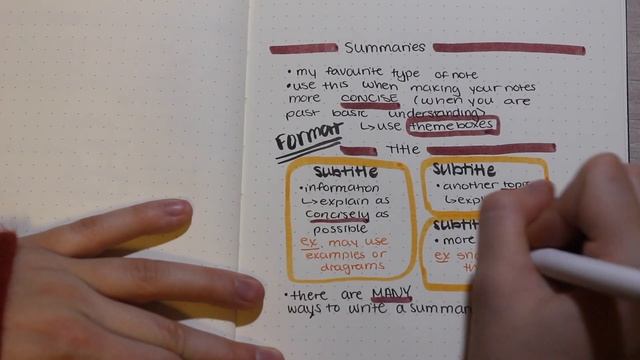 Summaries
• my favourite type of note
• use this when making your notes
more CONCISE (when you are
past basic understanding)
↳ use theme boxes
FORMAT
Title
Subtitle
• information
↳ explain as
concisely as
possible
ex. may use
examples or
diagrams
Subtitle
• another topic
Subtitle
• more
ex
• there are MANY
ways to write a